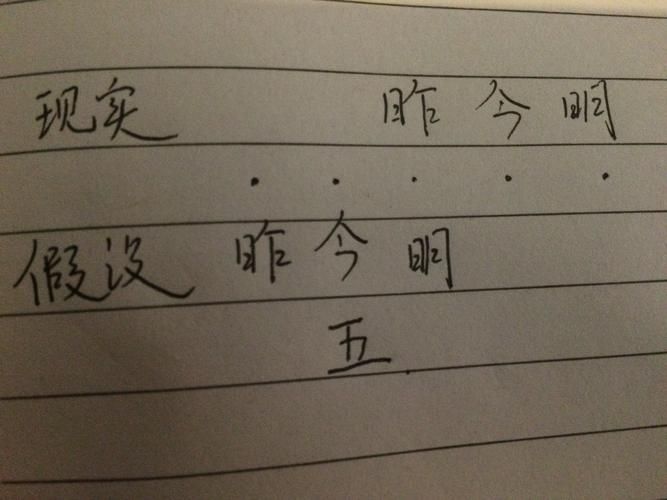 现实 昨 今 明
· · · · ·
假设 昨 今 明
五